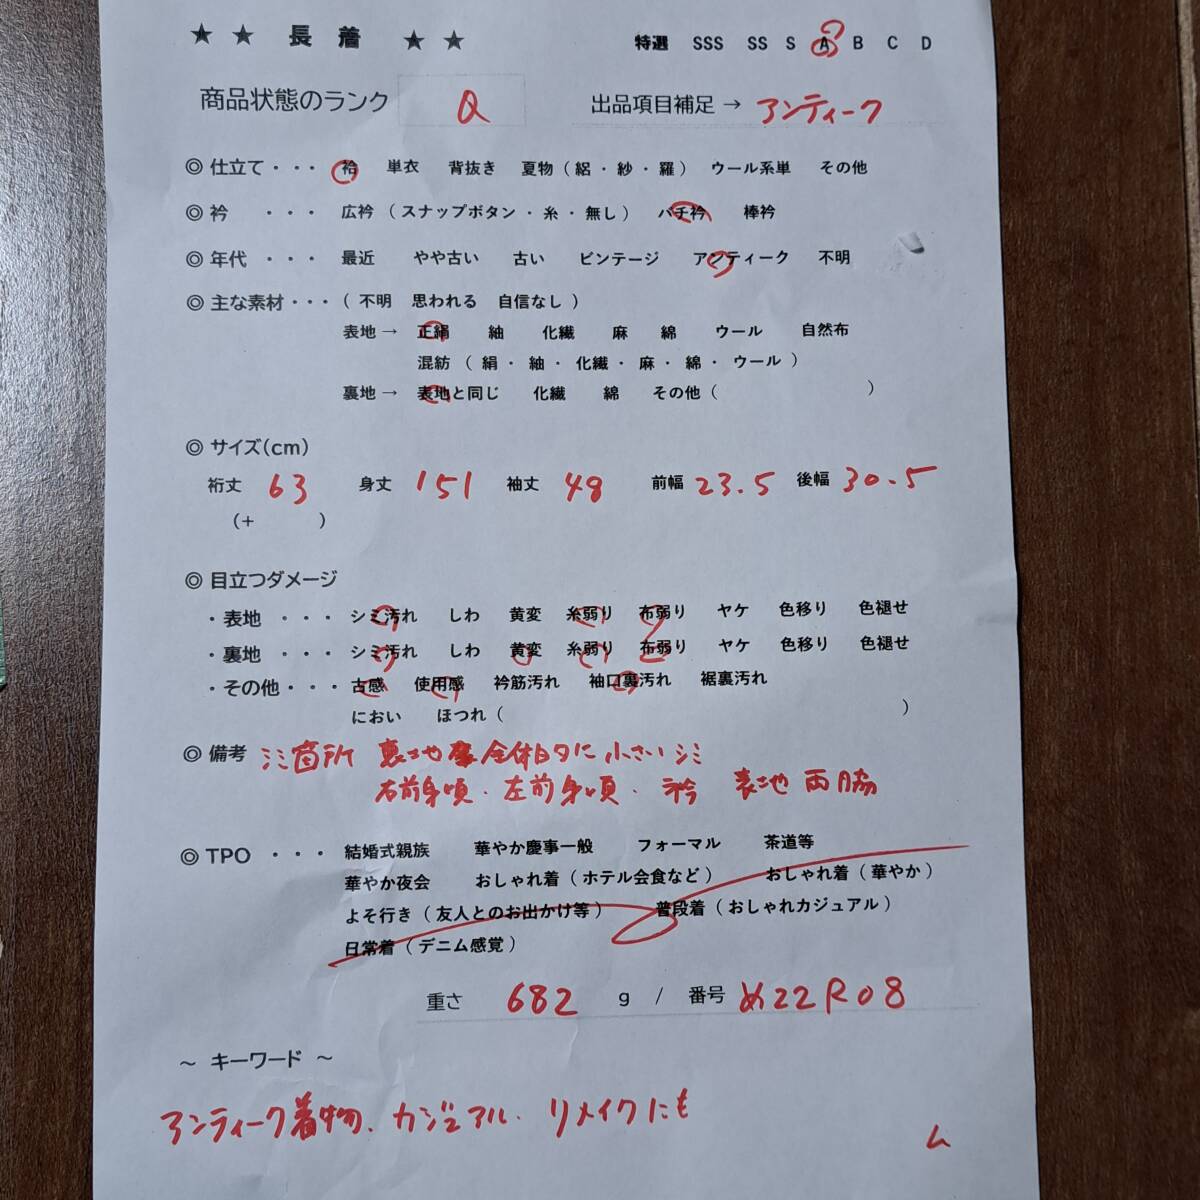 ★ ★ 長 着 ★ ★
特選 SSS SS S A B C D
商品状態のランク Q
出品項目補足 → アンティーク
◎ 仕立て ・・・ 袷 単衣 背抜き 夏物 ( 絽 ・ 紗 ・ 羅 ) ウール系単 その他
◎ 衿 ・・・ 広衿 ( スナップボタン ・ 糸 ・ 無し ) バチ衿 棒衿
◎ 年代 ・・・ 最近 やや古い 古い ビンテージ アンティーク 不明
◎ 主な素材 ・・・ ( 不明 思われる 自信なし )
表地 → 正絹 紬 化繊 麻 綿 ウール 自然布
混紡 ( 絹 ・ 紬 ・ 化繊 ・ 麻 ・ 綿 ・ ウール )
裏地 → 表地と同じ 化繊 綿 その他 ( )
◎ サイズ(cm)
裄丈 63 身丈 151 袖丈 48 前幅 23.5 後幅 30.5
(+ )
◎ 目立つダメージ
・表地 ・・・ シミ汚れ しわ 黄変 糸弱り 布弱り ヤケ 色移り 色褪せ
・裏地 ・・・ シミ汚れ しわ 黄変 糸弱り 布弱り ヤケ 色移り 色褪せ
・その他・・・ 古感 使用感 衿筋汚れ 袖口裏汚れ 裾裏汚れ
におい ほつれ ( )
◎ 備考 シミ箇所 裏地 全体的に小さいシミ
右前身頃・左前身頃・衿 表地 両脇
◎ TPO ・・・ 結婚式親族 華やか慶事一般 フォーマル 茶道等
華やか夜会 おしゃれ着 ( ホテル会食など ) おしゃれ着 ( 華やか )
よそ行き ( 友人とのお出かけ等 ) 普段着 ( おしゃれカジュアル )
日常着 ( デニム感覚 )
重さ 682 g / 番号 め22R08
～ キーワード ～
アンティーク着物、カジュアル、リメイクにも
ム